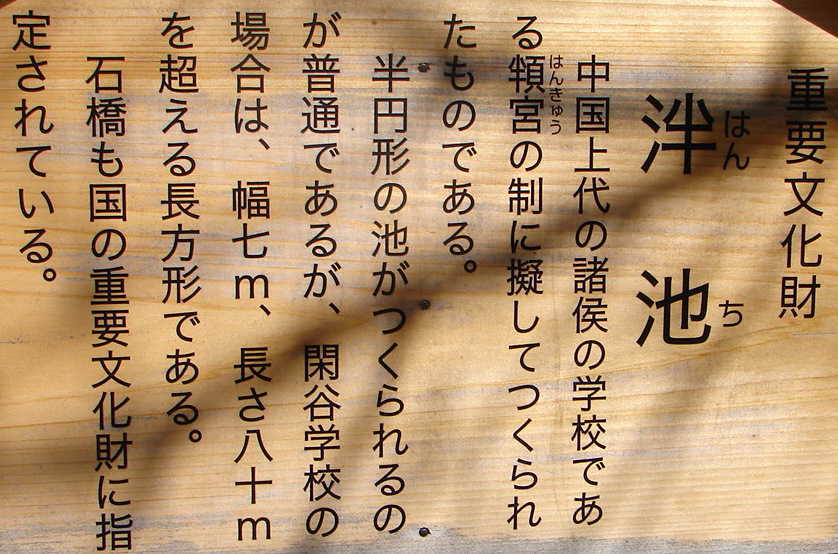 重要文化財
泮池
はんち
中国上代の諸侯の学校であ
る頖宮の制に擬してつくられ
はんきゅう
たものである。
半円形の池がつくられるの
が普通であるが、閑谷学校の
場合は、幅七m、長さ八十m
を超える長方形である。
石橋も国の重要文化財に指
定されている。